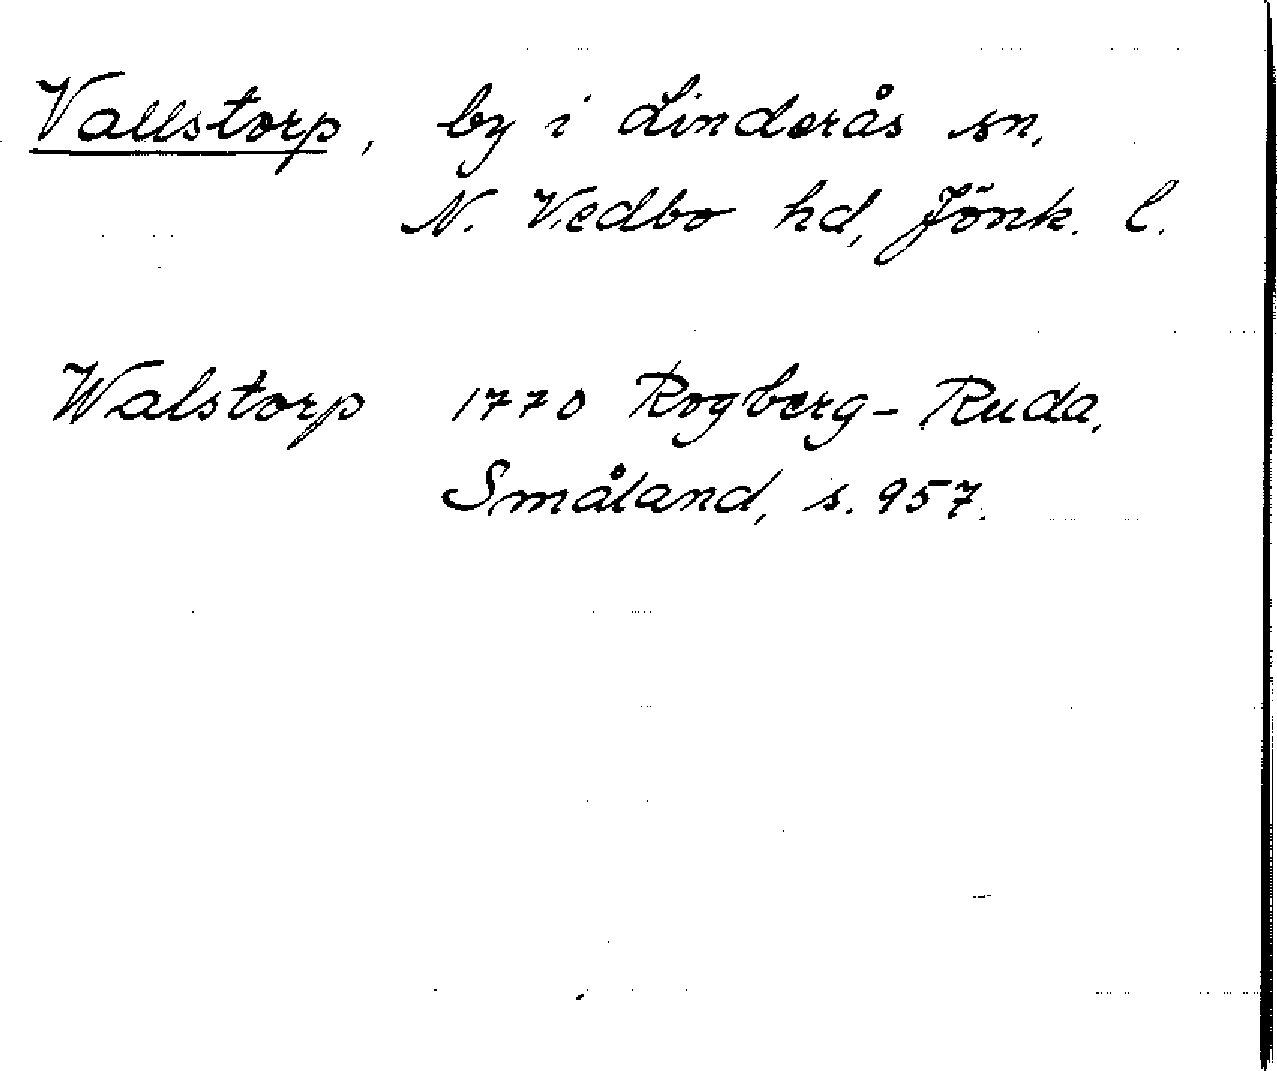 Vallstorp, by i Linderås sn,
N. Vedbo hd, Jönk. l.
Walstorp 1770 Rogberg-Ruda,
Småland, s. 957.